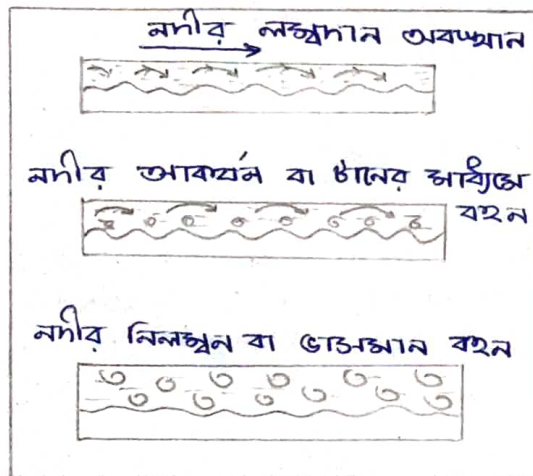 নদীর লম্ফদান অবস্থান
নদীর আকর্ষন বা টানের মাধ্যমে
বহন
নদীর নিলম্বন বা ভাসমান বহন